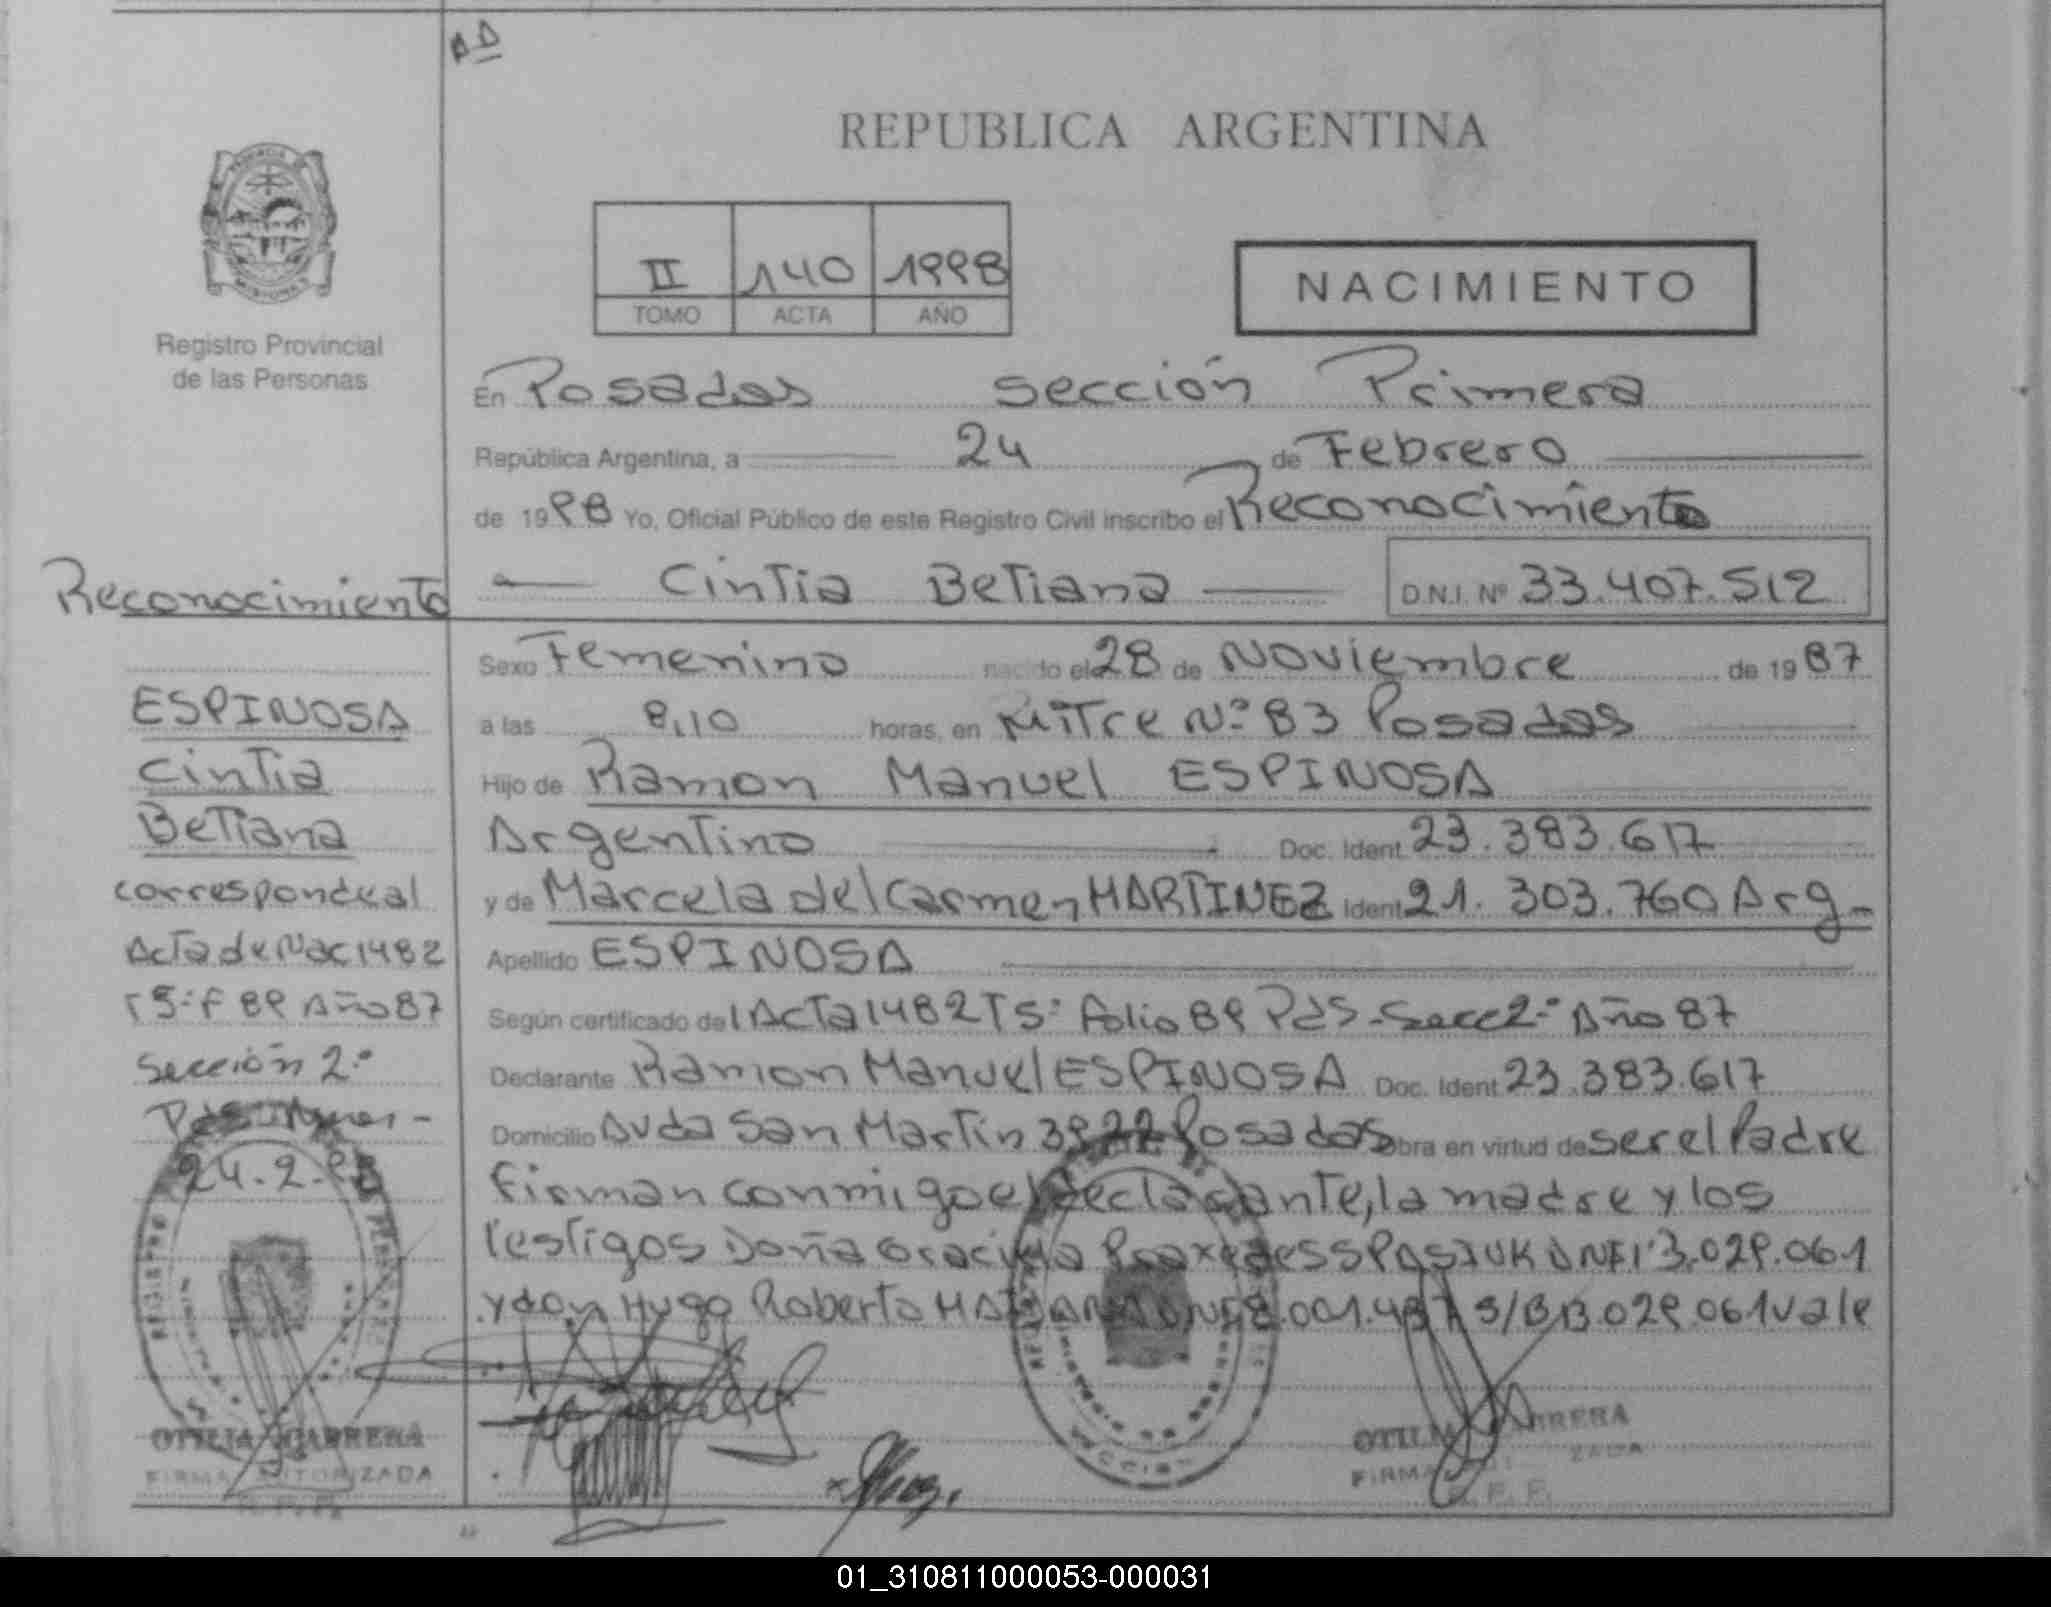 REPUBLICA ARGENTINA
II 140 1998
TOMO ACTA AÑO
NACIMIENTO
Registro Provincial
de las Personas
En Posadas sección Primera
República Argentina, a 24 de Febrero
de 1998 Yo, Oficial Público de este Registro Civil inscribo el Reconocimiento
Cintia Betiana D.N.I. Nº 33.407.512
Reconocimiento
ESPINOSA
Cintia
Betiana
corresponde al
Acta de Nac 1482
T5º F 89 Año 87
Sección 2º
24.2.98
OTILIA CABRERA
FIRMA AUTORIZADA
Sexo Femenino nacido el 28 de Noviembre de 1987
a las 8,10 horas, en Mitre Nº 83 Posadas
Hijo de Ramon Manuel ESPINOSA
Argentino Doc. Ident. 23.383.617
y de Marcela del Carmen MARTINEZ Ident 21.303.760 Arg
Apellido ESPINOSA
Según certificado del Acta 1482 T5º Folio 89 Pds-Secc 2º Año 87
Declarante Ramon Manuel ESPINOSA Doc. Ident. 23.383.617
Domicilio Avda San Martin Posadas obra en virtud de ser el Padre
Firman conmigo el declarante, la madre y los
Testigos Doña Graciela Praxedes SPASIUK DNI 13.029.061
y don Hugo Roberto 8.001.487 S/B 13.029.061 vale
OTILIA CABRERA
FIRMA
01_310811000053-000031